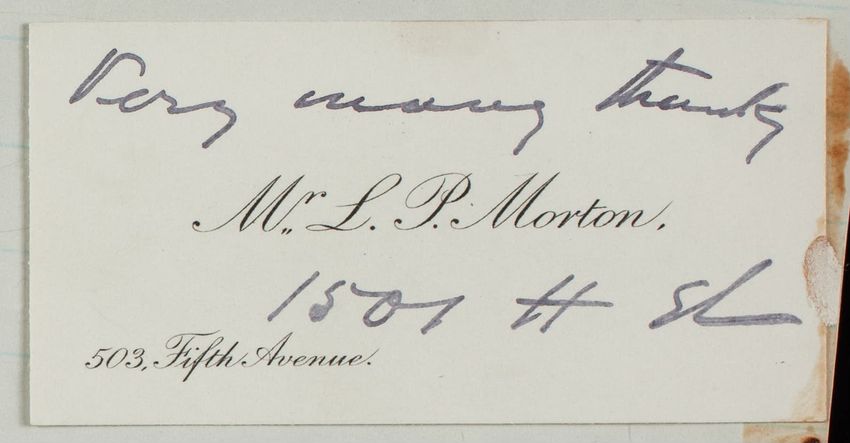 Very many thanks
Mr. L. P. Morton.
1501 H St
503, Fifth Avenue.